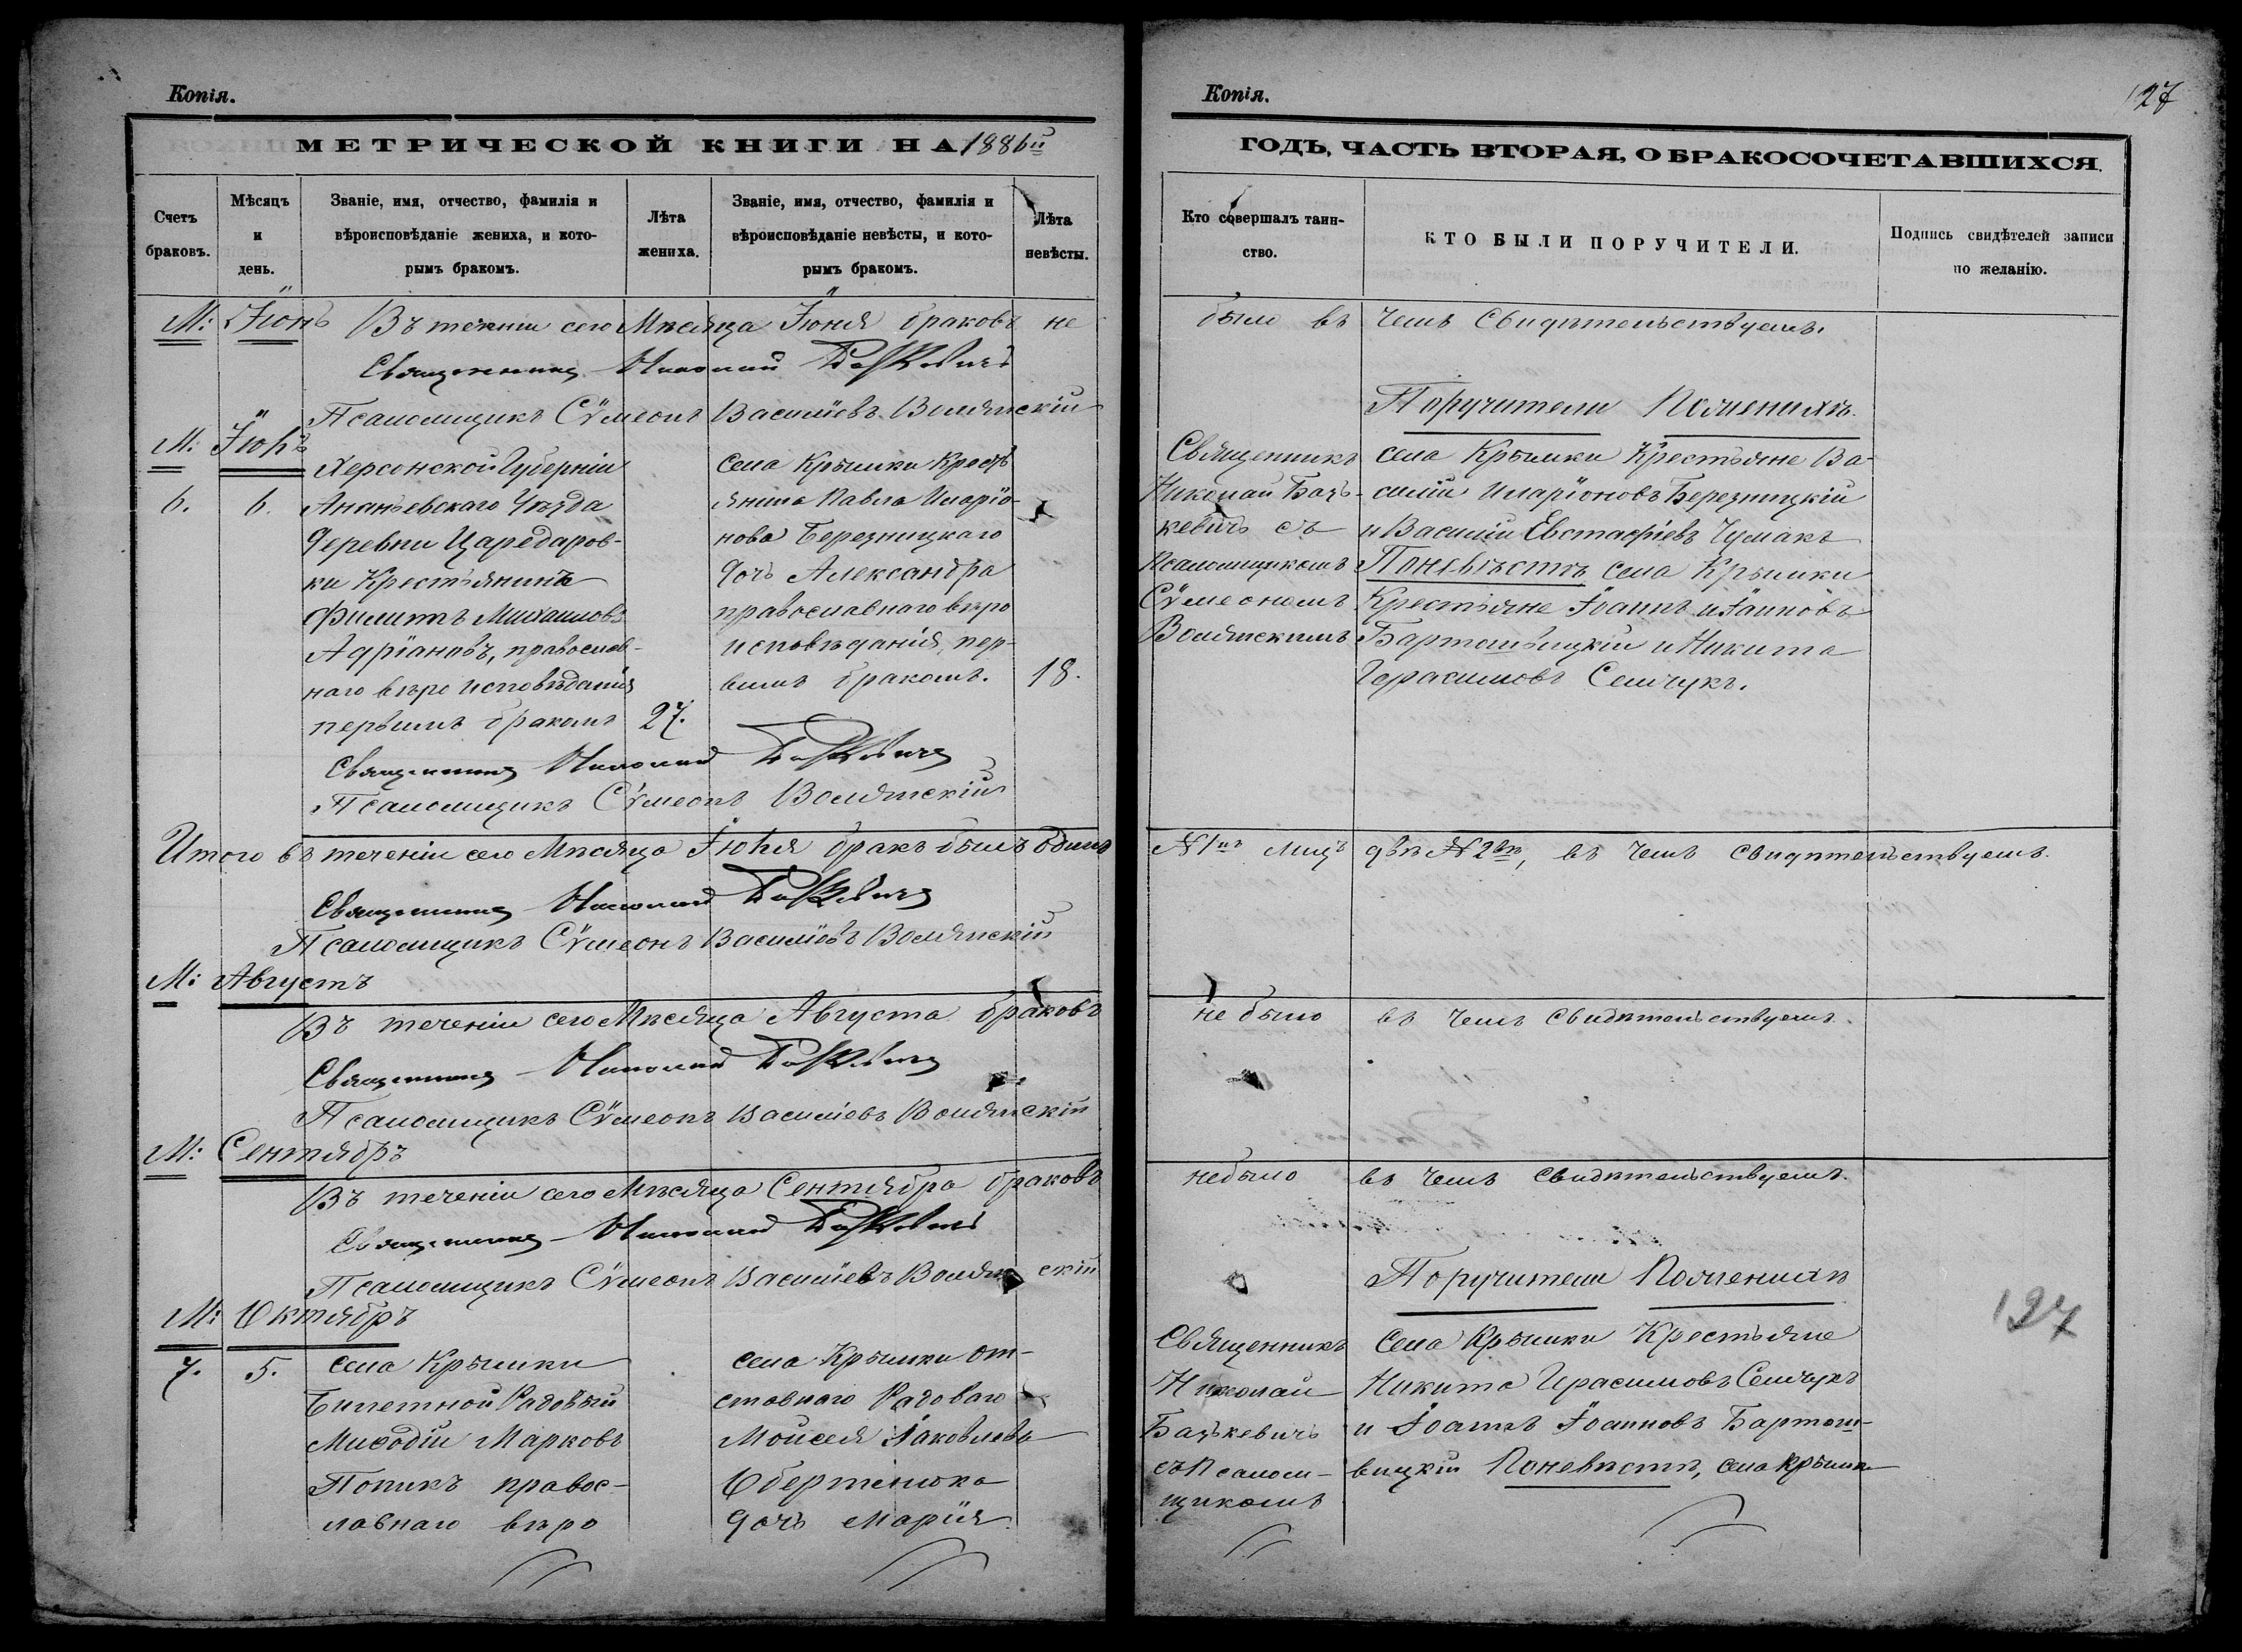 Копія.
МЕТРИЧЕСКОЙ КНИГИ НА 1886й
Счетъ браковъ.
Мѣсяцъ и день.
Званіе, имя, отчество, фамилія и вѣроисповѣданіе жениха, и которымъ бракомъ.
Лѣта жениха.
Званіе, имя, отчество, фамилія и вѣроисповѣданіе невѣсты, и которымъ бракомъ.
Лѣта невѣсты.
М: Іюнь Въ теченіи сего Мѣсяца Іюня браковъ не
Священникъ Николай
Псаломщикъ Сѷмеонъ Васильевъ Волянскій
М: Іюль
6. 6.
Херсонской Губерніи
Ананьевскаго Уѣзда
Деревни Царедаров-
ки Крестьянинъ
Филиппъ Михаиловъ
Адріановъ, православ-
наго вѣро исповѣданія
первымъ бракомъ 27.
Села Крымки Кресть
янина Павла Иларіо-
нова Березницкаго
дочь Александра
православнаго вѣро
исповѣданія, пер-
вымъ бракомъ. 18.
Священникъ Николай
Псаломщикъ Сѷмеонъ Волянскій
Итого въ теченіи сего Мѣсяца Іюля бракъ былъ одинъ
Священникъ Николай
Псаломщикъ Сѷмеонъ Васильевъ Волянскій
М: Августъ
Въ теченіи сего Мѣсяца Августа браковъ
Священникъ Николай
Псаломщикъ Сѷмеонъ Васильевъ Волянскій
М: Сентябръ
Въ теченіи сего Мѣсяца Сентября браковъ
Священникъ Николай
Псаломщикъ Сѷмеонъ Васильевъ Волянскій
М: Октябръ
7. 5.
села Крымки
Билетной Радовый
Мифодій Марковъ
Попикъ правос-
лавнаго вѣро
села Крымки от-
ставнаго Радоваго
Мойсея Іаковлева
Обертенюка
дочь Марія
Копія.
127
ГОДЪ, ЧАСТЬ ВТОРАЯ, О БРАКОСОЧЕТАВШИХСЯ.
Кто совершалъ таинство.
КТО БЫЛИ ПОРУЧИТЕЛИ.
Подпись свидѣтелей записи по желанію.
было въ чемъ Свидѣтельствуемъ.
Поручители Пожениху.
Священникъ
Николай Бацъ-
кевичъ съ
Псаломщикомъ
Сѷмеономъ
Волянскимъ
села Крымки Крестьяне Ва-
силій Иларіоновъ Березницкій
и Василій Евстафіевъ Чумакъ
Поневѣстѣ села Крымки
Крестьяне Іоаннъ Іоанновъ
Бартошвицкій и Никита
Герасимовъ Семчукъ.
N1нъ лицъ двѣ N2вѣ, въ чемъ Свидѣтельствуемъ.
не было въ чемъ Свидѣтельствуемъ.
небыло въ чемъ Свидѣтельствуемъ.
Поручители Пожениху
Священникъ
Николай
Бацькевичъ
съ Псалом-
щикомъ
Села Крымки Крестьяне
Никита Ирасимовъ Семчукъ
и Іоаннъ Іоанновъ Бартош-
вицкій Поневѣстѣ, села Крымки
127